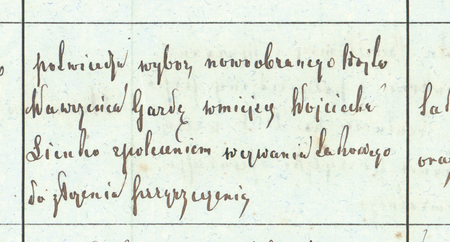 potwierdza wybor nowoobranego Wojta
Wawrzeńca Gardę w miejscu Wojciecha
Lienko z poleceniem wezwania takowego
do złożenia przyrzeczenia